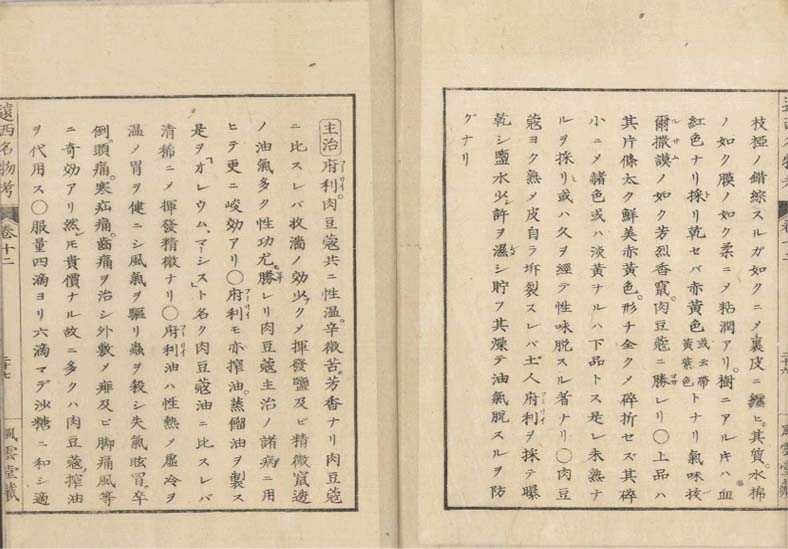 枝椏ノ錯綜スルガ如クニ乄裏皮ニ纏ヒ其質水棉
ノ如ク膜ノ如ク柔ニ乄粘潤アリ樹ニアルキハ血
紅色ナリ採リ乾セバ赤黄色或云帯黄紫色トナリ氣味抜
爾撒謨ノ如ク芳烈香竄肉豆蔻ニ勝レリ〇上品ハ
其片條太ク鮮美赤黄色形チ金ク乄碎折セズ其碎
小ニ乄諸色或ハ淡黄ナルハ下品トス是レ未熟ナ
ルヲ採リ或ハ久ヲ經テ性味脱スル者ナリ〇肉豆
蔻ヨク熟乄皮自ラ坼裂スレバ土人府利ヲ採テ曝
乾シ鹽水少許ヲ灑シ貯フ其燥テ油氣脱スルヲ防
グナリ
主治府利肉豆蔻共ニ性温辛微苦芳香ナリ肉豆蔻
ニ比スレバ收濇ノ効少ク乄揮發鹽及ビ精微竄透
ノ油氣多ク性功尤勝レリ肉豆蔻主治ノ諸病ニ用
ヒテ更ニ峻効アリ〇府利モ亦搾油蒸餾油ヲ製ス
是ヲ「オレウム、マーシス」ト名ク肉豆蔻油ニ比スレバ
清稀ニ乄揮發精微ナリ〇府利油ハ性熱乄虚冷ヲ
温ノ胃ヲ健ニシ風氣ヲ驅リ蟲ヲ殺シ失氣眩冒卒
倒頭痛寒疝痛齒痛ヲ治シ外敷乄痱及ビ脚痛風等
ニ奇効アリ然レモ貴價ナル故ニ多クハ肉豆蔻搾油
ヲ代用ス〇服量四滴ヨリ六滴マデ沙糖ニ和シ適
遠西名物考 卷十二 二十七 風雲堂藏